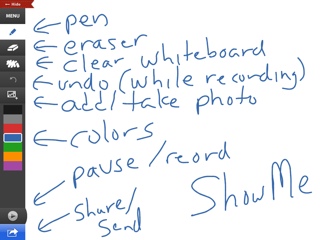 Hide
MENU
pen
eraser
clear whiteboard
undo (while recording)
add/take photo
colors
pause/reord
ShowMe
share/
send